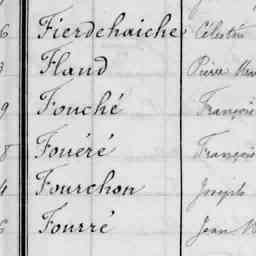 6 Fierdehaiche Célestin
3 Fland Pierre
9 Fouché François
8 Fouéré François
4 Fourchon Joseph
6 Fourré Jean